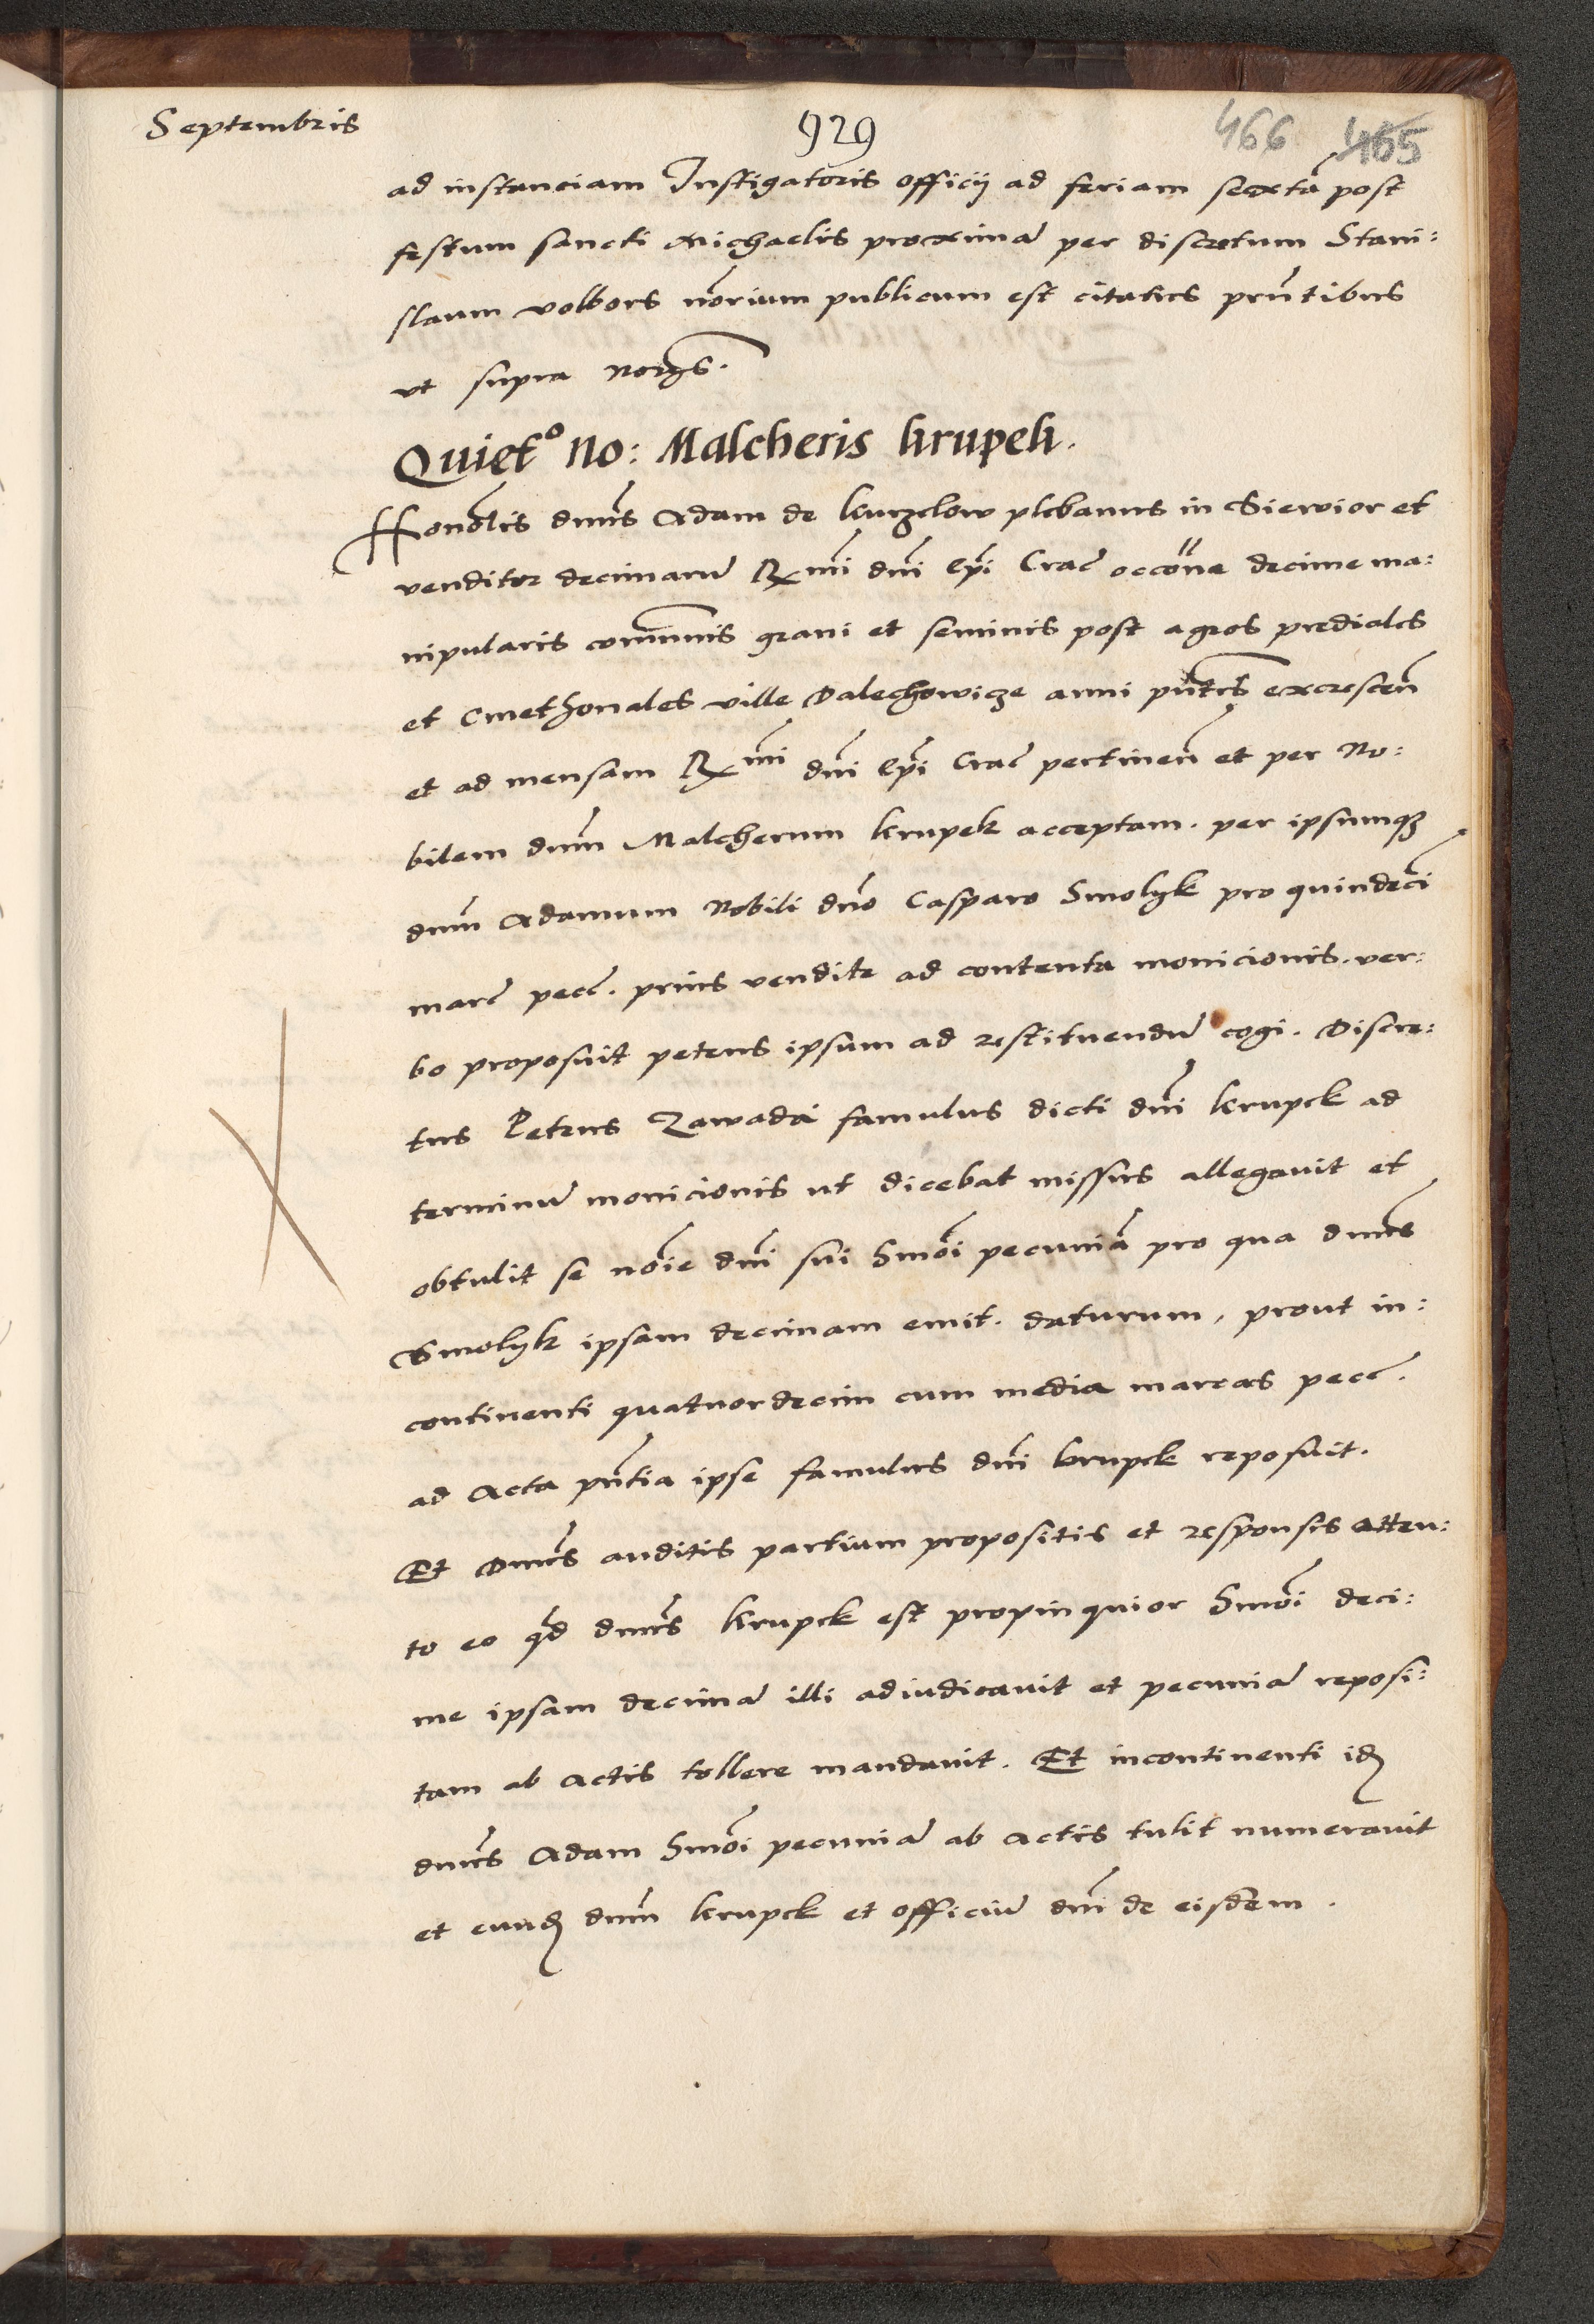 Septembris
929
466 465
ad instanciam Instigatoris officij ad feriam sextã post
festum sancti Michaelis proximã per discretum Stani:
slaum volbors no͂rium publicum est citatus pñtibus
vt supra norzs.
Quietº No: Malcheris krupek.
Honol͂is dnũs Adam de kurzelow plebanus in Siewior et
venditor decimarũ Rxmi dnĩ Epĩ Crac̃ occõne decime ma:
nipularis com̃unis grani et seminis post agros prediales
et Cmethonales ville Dalechowicze anni pñtis excrescen̄
et ad mensam Rxmi dnĩ Epĩ Crac̃ pertinen̄ et per No:
bilem dnũm Malcherum krupek acceptam. per ipsumqz
dnũm Adamum Nobili dnõ Casparo Smolyk pro quindecĩ
marc̃ pecc̃. prius vendite ad contenta monicionis. ver:
bo proposuit petens ipsum ad restituendũ cogi. Discre:
tus Petrus Zawada famulus dicti dnĩ krupek ad
terminũ monicionis ut dicebat missus allegauit et
obtulit se noĩe dnĩ sui Smõi pecuniã pro qua dnũs
Smolyk ipsam decimam emit. daturum, prout in:
continenti quatuordecim cum media marcas pecc̃.
ad Acta pñtia ipse famulus dnĩ krupek reposuit.
Et Dnũs auditis partium propositis et responsis atten:
to eo qd dnũs krupek est propinquior Smõi deci:
me ipsam decimã illi adiudicauit et pecuniã reposi:
tam ab Actis tollere mandauit. Et incontinenti idẽ
dnũs Adam Smõi pecuniã ab Actis tulit numerauit
et eundẽ dnũm krupek et officiũ dnĩ de eisdem.